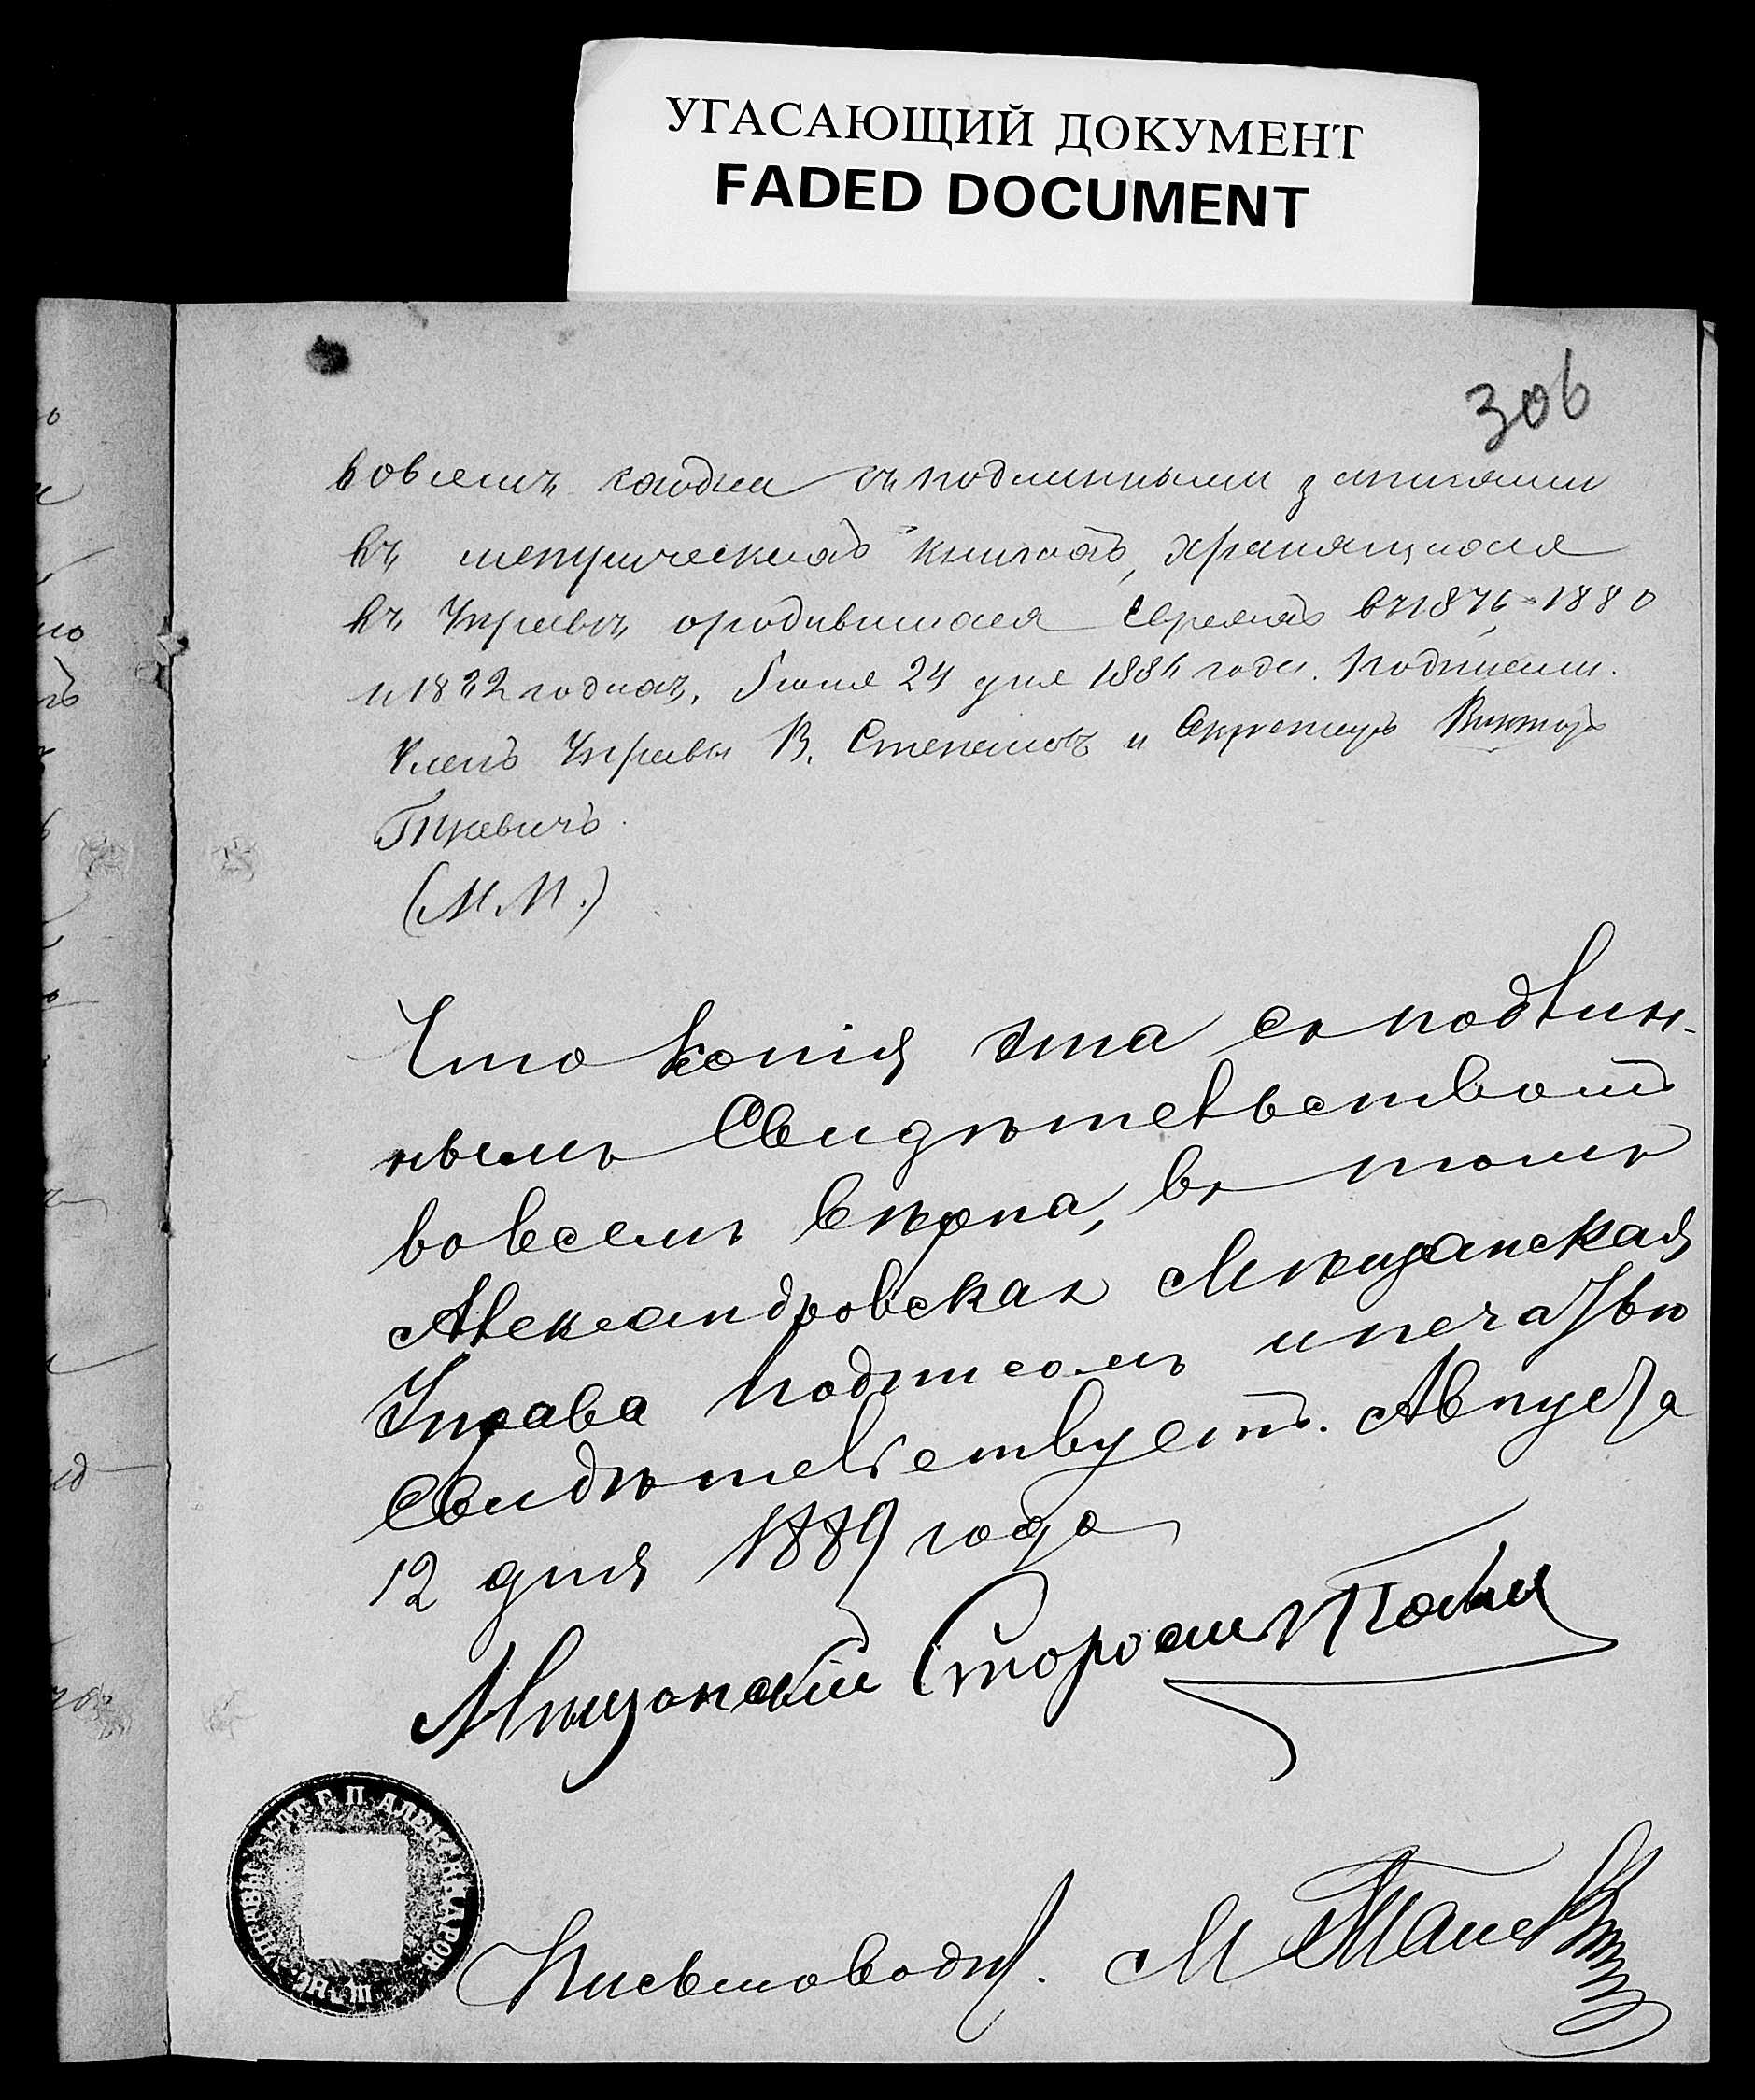 УГАСАЮЩИЙ ДОКУМЕНТ
FADED DOCUMENT
306
вовсемъ сходна съ подлинными записями
въ метрическихъ книгахъ, хранящихся
въ Управѣ, о родившихся Евреяхъ въ 1876, 1880
и 1882 годахъ, Іюня 24 дня 1886 года. Подписали.
Членъ Управы В. Степановъ и Секретарь Викторъ
(М.П.)
Что копія эта съ подлин-
нымъ Свидѣтельствомъ
во всемъ вѣрна, въ томъ
Александровская Мѣщанская
Управа подписомъ и печатью
свидѣтельствуетъ. Августа
12 дня 1889 года
Мѣщанскій Староста
Письмоводит. М